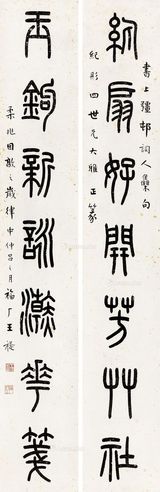 書上彊邨詞人集句
紈扇好開芳艸社
紀彤四世兄大雅正篆
玉鉤新澣華箋
柔兆困敦之歲律中仲呂之月福厂王禔